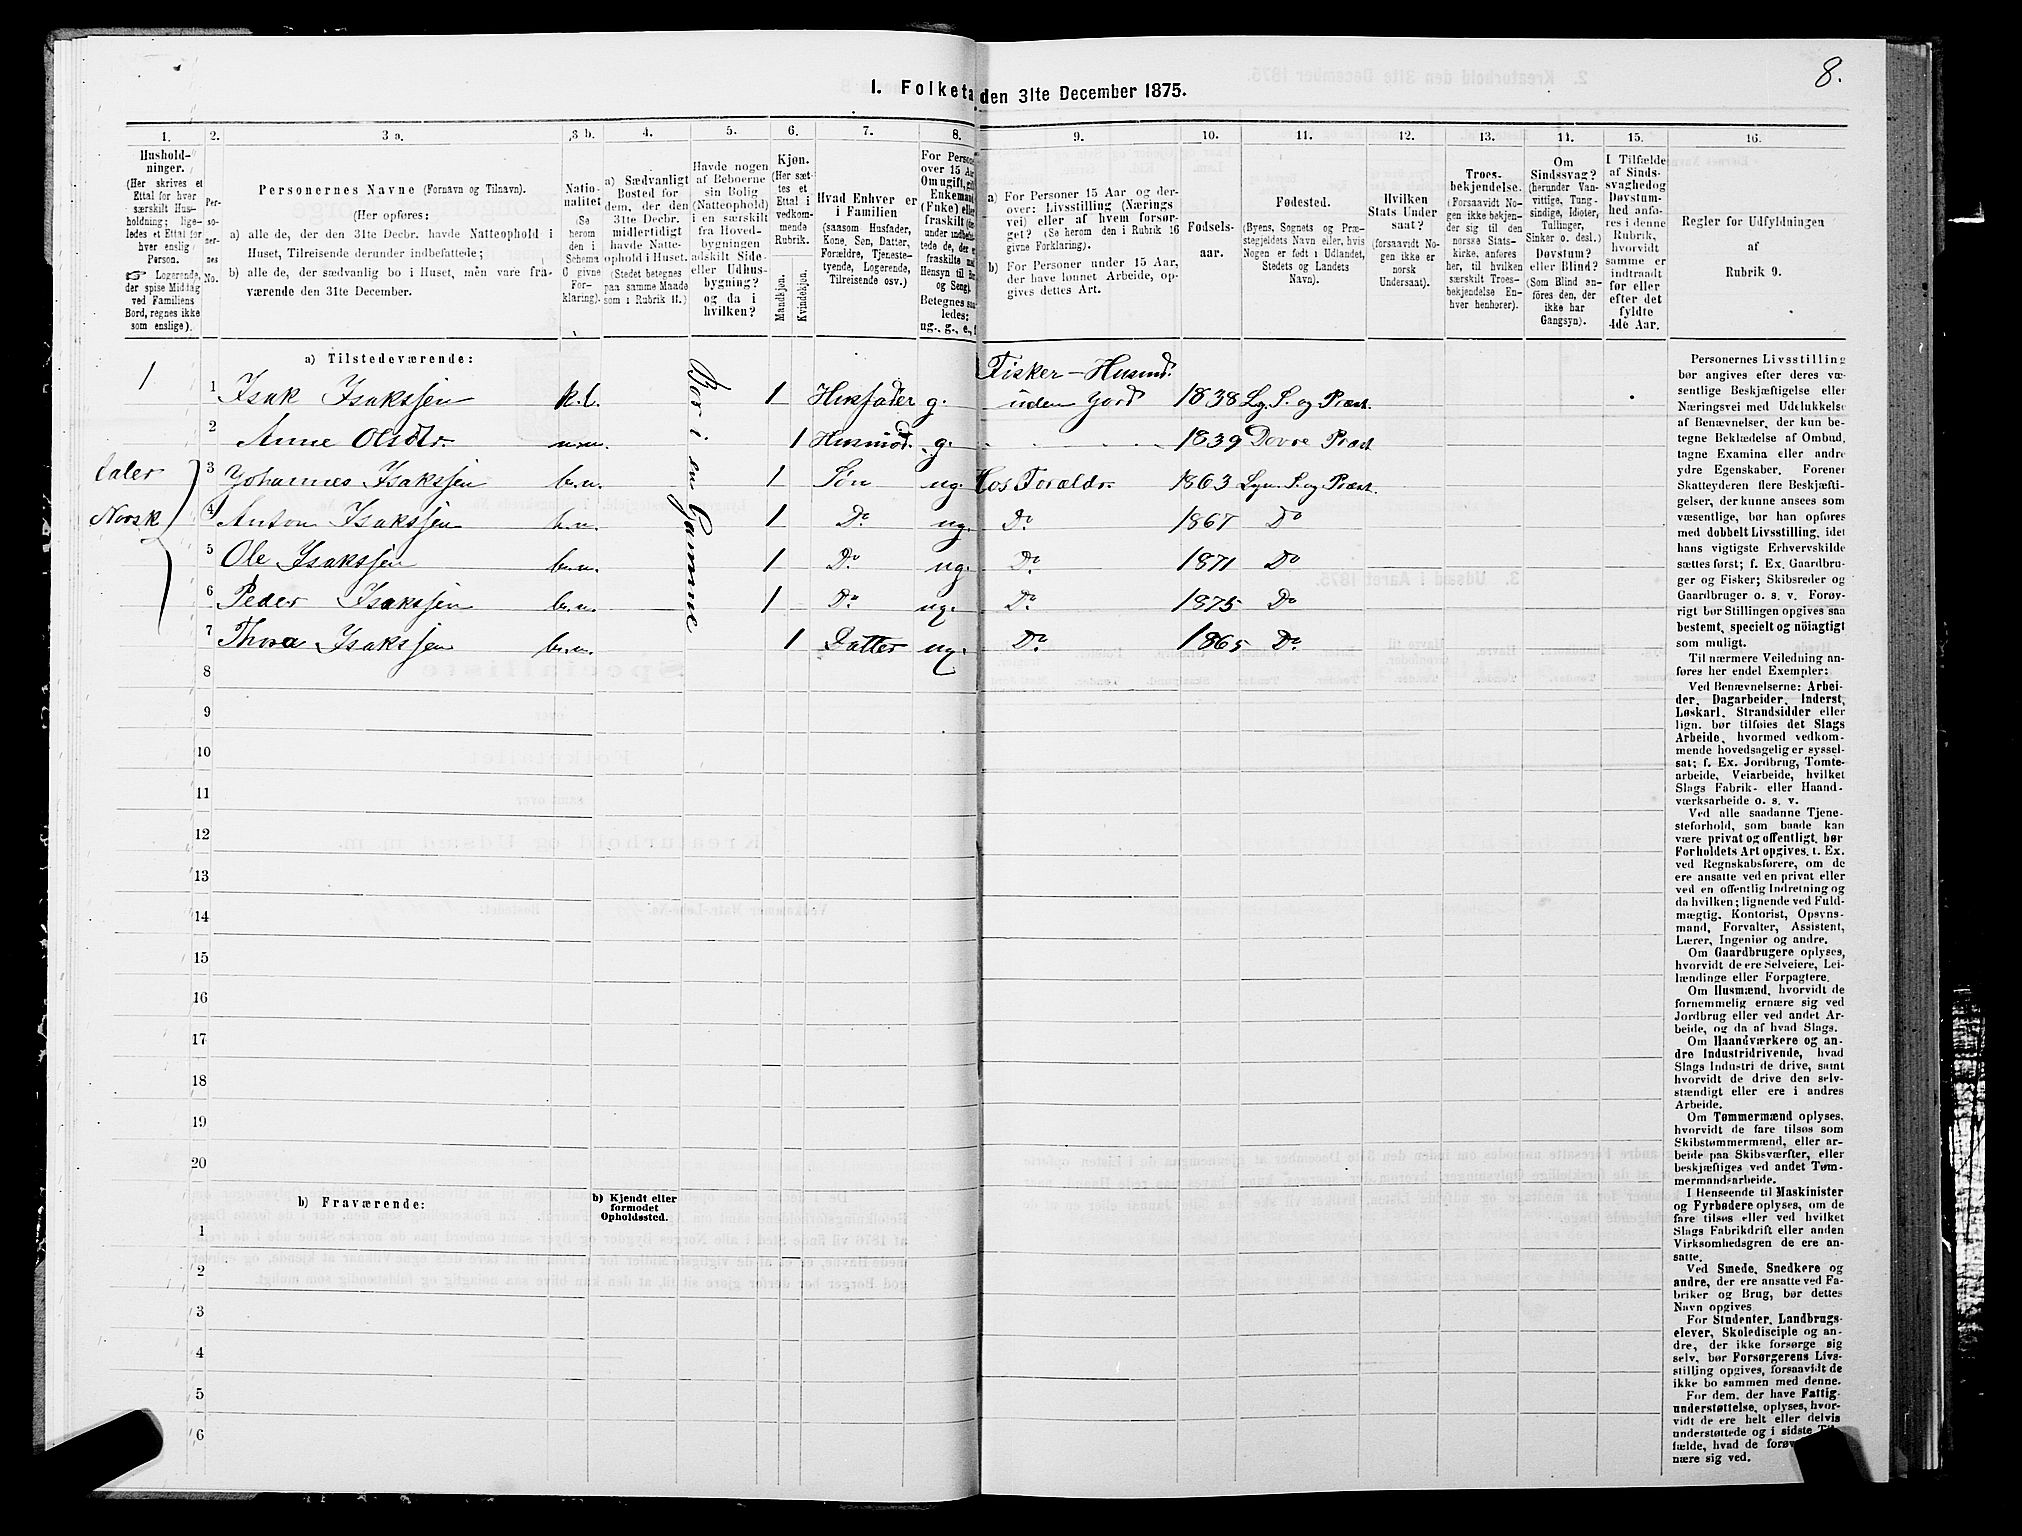 8.
1. Folketa den 31te December 1875.
1. 2. 3 a. 3 b. 4. 5. 6. 7. 8. 9. 10. 11. 12. 13. 14. 15. 16.
Hushold-
ninger.
(Her skrives et
Ettal for hver
særskilt Hus-
holdning; lige-
ledes et Ettal for
hver enslig
Person.
☞ Logerende,
der spise Middag
ved Familiens
Bord, regnes ikke
som enslige).
Per-
so-
ner-
nes
No.
Personernes Navne (Fornavn og Tilnavn).
(Her opføres:
a) alle de, der den 31te Decbr. havde Natteophold i
Huset, Tilreisende derunder indbefattede;
b) alle de, der sædvanlig bo i Huset, men vare fra-
værende den 31te December.
Natio-
nalitet
(Se
herom
den i
Schema
6 givne
For-
klaring).
a) Sædvanligt
Bosted for
dem, der den
31te Decbr.
midlertidigt
havde Natte-
ophold i Huset.
(Stedet betegnes
paa samme Maade
som i Rubrik 11.)
Havde nogen
af Beboerne
sin Bolig
(Natteophold)
i en særskilt
fra Hoved-
bygningen
adskilt Side-
eller Udhus-
bygning?
og da i
hvilken?
Kjøn.
(Her sæt-
tes et
Ettal i
vedkom-
mende
Rubrik.
Mandkjøn.
Kvindekjøn.
Hvad Enhver er
i Familien
(saasom Husfader,
Kone, Søn, Datter,
Forældre, Tjeneste-
tyende, Logerende,
Tilreisende osv.)
For Persone
over 15 Aar
Om ugift, gift
Enkemand
(Enke) eller
fraskilt (der
under indbefat-
tede de, der er
fraskilte med
Hensyn til Bor
og Seng).
Betegnes saa-
ledes:
ug., g., e., f.
a) For Personer 15 Aar og der-
over: Livsstilling (Nærings
vei) eller af hvem forsør-
get? (Se herom den i Rubrik 16
givne Forklaring).
b) For Personer under 15 Aar,
der have lønnet Arbeide, op-
gives dettes Art.
Fødsels-
aar.
Fødested.
(Byens, Sognets og Præ-
stegjeldets Navn eller, hvis
Nogen er født i Udlandet,
Stedets og Landets
Navn).
Hvilken
Stats Under
saat?
(forsaavidt No-
gen ikke er
norsk
Undersaat).
Troes-
bekjendelse.
(Forsaavidt No-
gen ikke bekjen-
der sig til den
norske Stats-
kirke, anføres
her, til hvilken
særskilt Troes-
bekjendelse En-
hver henhører).
Om
Sindssvag?
(herunder Van-
vittige, Tung-
sindige, Idioter,
Tullinger,
Sinker o. desl.)
Døvstum?
eller Blind?
(Som Blind an-
føres den, der
ikke har
Gangsyn).
I Tilfælde
af Sinds-
svaghed og
Døvstum-
hed anfø-
res i denne
Rubrik,
hvorvidt
samme er
indtraadt
før eller
efter det
fyldte
4de Aar.
Regler for Udfyldningen
af
Rubrik 9.
a) Tilstedeværende:
1 1 Isak Isakssen k.l. 1 Husfader g. Fisker - Husmd. uden Jord 1838 Ly. S. og Præst.
2 Anne Olsdtr. n.n. 1 Husmod. g. 1839 Dovre Præst
3 Johannes Isakssen b.n. 1 Søn ug. Hos Forældr. 1863 Lyn. S. og Præst.
4 Anton Isakssen b.n. 1 Do. ug. Do. 1867 Do
5 Ole Isakssen b.n. 1 Do. ug. Do. 1871 Do
6 Peder Isakssen b.n. 1 Do. ug. Do. 1875 Do
7 Thora Isakssen b.n. 1 Datter ug. Do. 1865 Do.
taler
Norsk
Bor i en Gamme
8
9
10
11
12
13
14
15
16
17
18
19
20
b) Fraværende:
b) Kjendt eller
formodet
Opholdssted.
1
2
3
4
5
6
Personernes Livsstilling
bør angives efter deres væ-
sentlige Beskjæftigelse eller
Næringsvei med Udelukkelse
af Benævnelser, der kun be-
tegne Beklædelse af Ombud,
tagne Examina eller andre
ydre Egenskaber. Forener
Skatteyderen flere Beskjæfti-
gelser, der kunne ansees som
væsentlige, bør han opføres
med dobbelt Livsstilling, idet
hans vigtigste Erhvervskilde
sættes først; f. Ex. Gaardbru-
ger og Fisker; Skibsreder og
Gaardbruger o. s. v. Forøv-
rigt bør Stillingen opgives saa
bestemt, specielt og nöiagtigt
som muligt.
Til nærmere Veiledning an-
føres her endel Exempler:
Ved Benævnelserne: Arbei-
der, Dagarbeider, Inderst,
Løskarl, Strandsidder eller
lign. bør tilføies det Slags
Arbeide, hvormed vedkom-
mende hovedsagelig er syssel-
sat; f. Ex. Jordbrug, Tomte-
arbeide, Veiarbeide, hvilket
Slags Fabrik- eller Haand-
værksarbeide o. s. v.
Ved alle saadanne Tjene-
steforhold, som baade kan
være privat og offentligt, bør
Forholdets Art opgives, t. Ex.
ved Regnskabsførere, om de
ere ansatte ved en privat eller
ved en offentlig Indretning og
da hvilken; lignende ved Fuld-
mægtig, Kontorist, Opsyns-
mand, Forvalter, Assistent,
Lærer, Ingeniør og andre.
Om Gaardbrugere oplyses,
hvorvidt de ere Selveiere, Lei-
lændinge eller Forpagtere.
Om Husmænd, hvorvidt de
fornemmelig ernære sig ved
Jordbrug eller ved andet Ar-
beide, og da af hvad Slags.
Om Haandværkere og an-
dre Industridrivende, hvad
Slags Industri de drive, samt
hvorvidt de drive den selv-
stændigt eller ere i andres
Arbeide.
Om Tømmermænd oplyses,
hvorvidt de fare tilsøs som
Skibstømmermænd, eller ar-
beide paa Skibsværfter, eller
beskjæftiges ved andet Tøm-
mermandsarbeide.
I Henseende til Maskinister
og Fyrbødere oplyses, om de
fare tilsøs eller ved hvilket
Slags Fabrikdrift eller anden
Virksomhedsgren de ere an-
satte.
Ved Smede, Snedkere og
andre, der ere ansatte ved Fa-
briker og Brug, bør dettes
Navn opgives
For Studenter, Landbrugs-
elever, Skoledisciple og an-
dre, der ikke forsørge sig
selv, bør Forsørgerens Livs-
stilling opgives, forsaavidt de
ikke bo sammen med denne.
For dem, der have Fattig-
understøttelse, oplyses, hvor-
vidt de ere helt eller delvis
understøttede og i sidste Til-
fælde, hvad de forøv
nære sig ved.